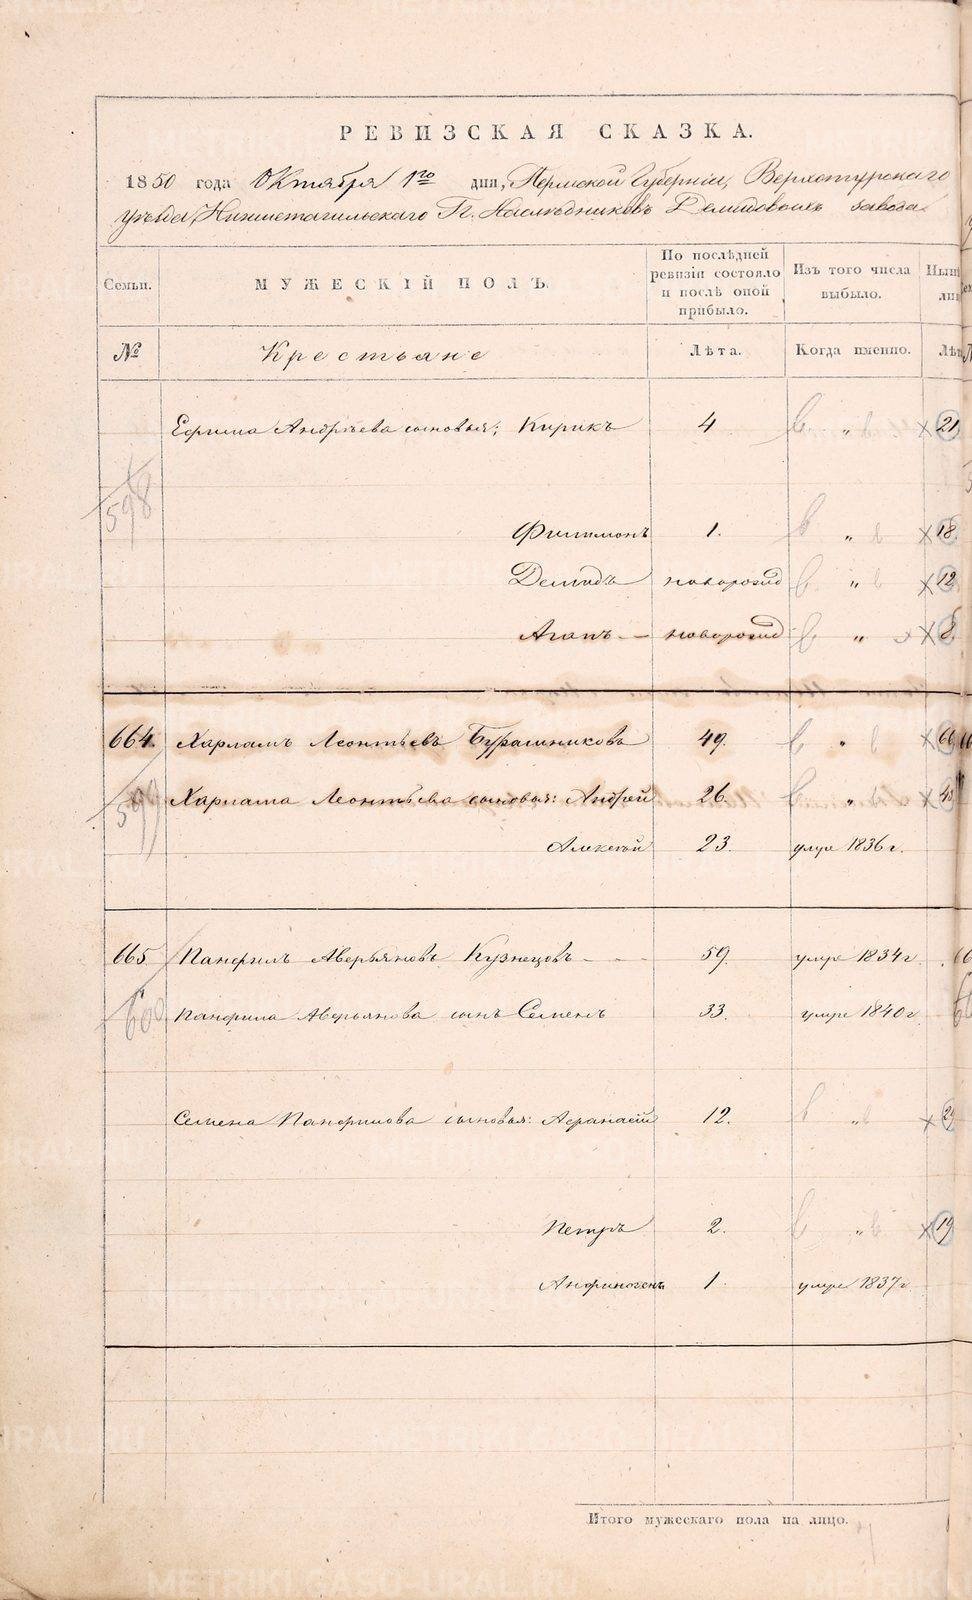 РЕВИЗСКАЯ СКАЗКА.
1850 года Октября 1го дня, Пермской Губерніи, Верхотурскаго
уѣзда, Нижнетагильскаго Гг. Наслѣдниковъ Демидовыхъ завода
Семьи. МУЖЕСКІЙ ПОЛЪ. По послѣдней ревизіи состояло и послѣ оной прибыло. Изъ того числа выбыло.
№ Крестьяне Лѣта. Когда именно.
Ефима Андрѣева сыновья; Кирикъ 4 " 21
598
Филимонъ 1. " 18
Демидъ новорожд " 12
Агапъ новорожд " 8
664. Харламъ Леонтьевъ Бурашниковъ 49. "
599 Харлама Леонтьева сыновья: Андрей 26. "
Алексѣй 23. умре 1836 г.
665 Панфилъ Аверьяновъ Кузнецовъ 59. умре 1834 г
600 Панфила Аверьянова сынъ Семенъ 33. умре 1840 г
Семена Панфилова сыновья: Афанасій 12. "
Петръ 2. " 19
Анфиногенъ 1. умре 1837 г
Итого мужескаго пола на лицо.
METRIKI.GASO-URAL.RU